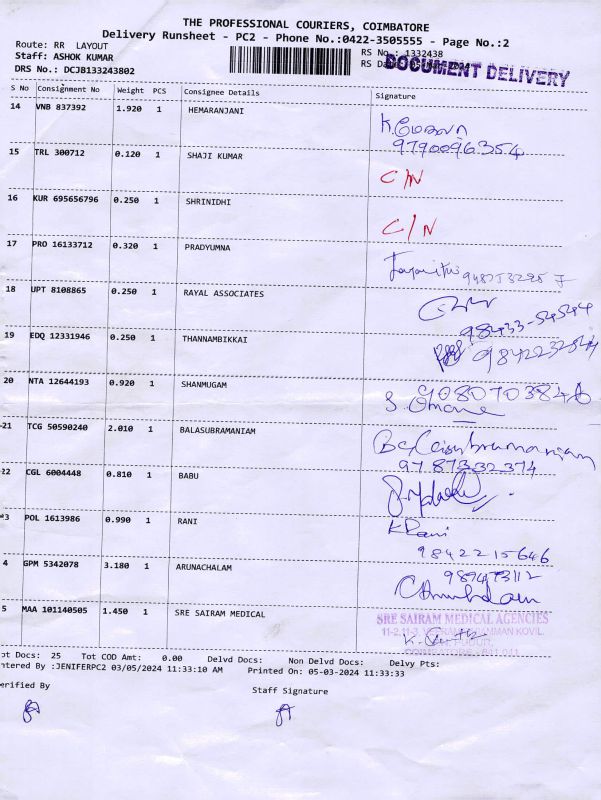 THE PROFESSIONAL COURIERS, COIMBATORE
Delivery Runsheet - PC2 - Phone No.:0422-3505555 - Page No.:2
Route: RR LAYOUT
RS No.: 1332438
Staff: ASHOK KUMAR
RS Da
DOCUMENT DELIVERY
DRS No.: DCJB133243802
S No Consignment No Weight PCS Consignee Details Signature
14 VNB 837392 1.920 1 HEMARANJANI
9790096354
15 TRL 300712 0.120 1 SHAJI KUMAR C/N
16 KUR 695656796 0.250 1 SHRINIDHI C/N
17 PRO 16133712 0.320 1 PRADYUMNA
18 UPT 8108865 0.250 1 RAYAL ASSOCIATES
98433-54544
19 EDQ 12331946 0.250 1 THANNAMBIKKAI
20 NTA 12644193 0.920 1 SHANMUGAM
S.
21 TCG 50590240 2.010 1 BALASUBRAMANIAM
9787332374
22 CGL 6004448 0.810 1 BABU
3 POL 1613986 0.990 1 RANI K Rani
9842215646
4 GPM 5342078 3.180 1 ARUNACHALAM
5 MAA 101140505 1.450 1 SRE SAIRAM MEDICAL
SRE SAIRAM MEDICAL AGENCIES
ot Docs: 25 Tot COD Amt: 0.00 Delvd Docs: Non Delvd Docs: Delvy Pts:
ntered By :JENIFERPC2 03/05/2024 11:33:10 AM Printed On: 05-03-2024 11:33:33
erified By
Staff Signature